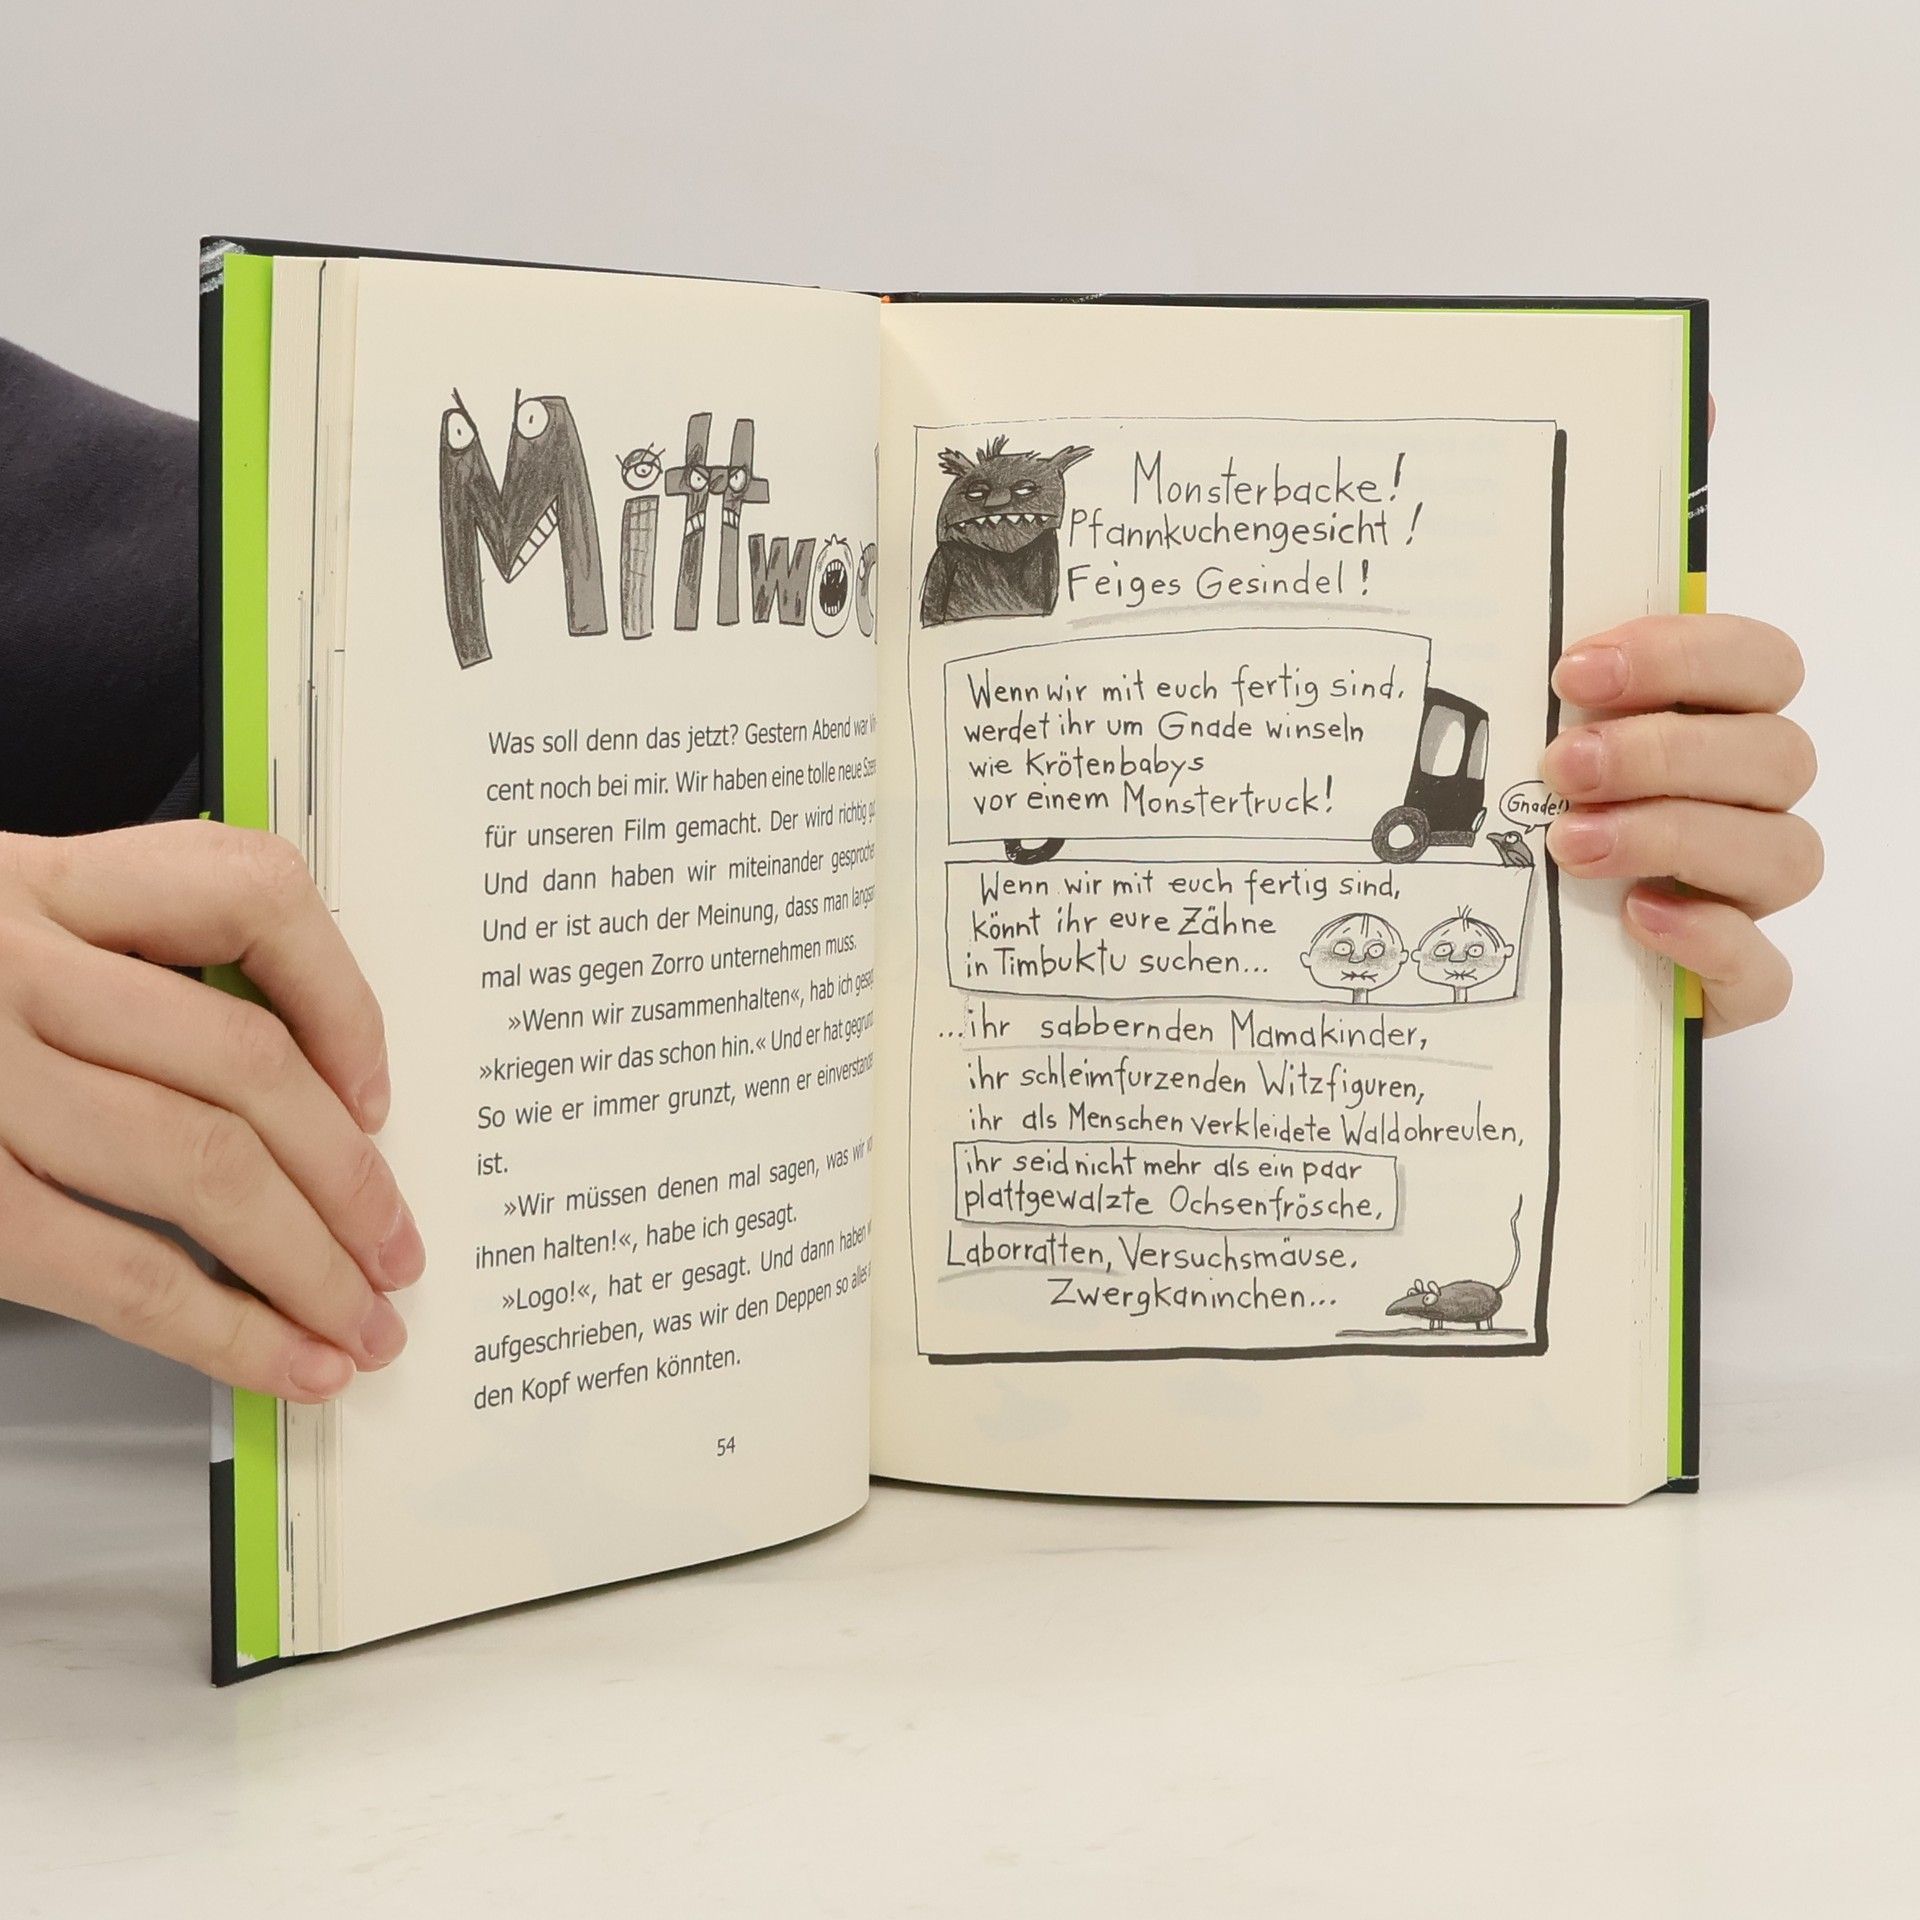 Mittwoc
Was soll denn das jetzt? Gestern Abend war
cent noch bei mir. Wir haben eine tolle neue
für unseren Film gemacht. Der wird richtig
Und dann haben wir miteinander
Und er ist auch der Meinung, dass man
mal was gegen Zorro unternehmen muss.
»Wenn wir zusammenhalten«, hab ich
»kriegen wir das schon hin.« Und er hat
So wie er immer grunzt, wenn er
ist.
»Wir müssen denen mal sagen, was wir
ihnen halten!«, habe ich gesagt.
»Logo!«, hat er gesagt. Und dann haben
aufgeschrieben, was wir den Deppen so alles
den Kopf werfen könnten.
54
Monsterbacke!
Pfannkuchengesicht!
Feiges Gesindel!
Wenn wir mit euch fertig sind,
werdet ihr um Gnade winseln
wie Krötenbabys
vor einem Monstertruck!
Gnade!
Wenn wir mit euch fertig sind,
könnt ihr eure Zähne
in Timbuktu suchen...
...ihr sabbernden Mamakinder,
ihr schleimfurzenden Witzfiguren,
ihr als Menschen verkleidete Waldohreulen,
ihr seid nicht mehr als ein paar
plattgewalzte Ochsenfrösche,
Laborratten, Versuchsmäuse,
Zwergkaninchen...